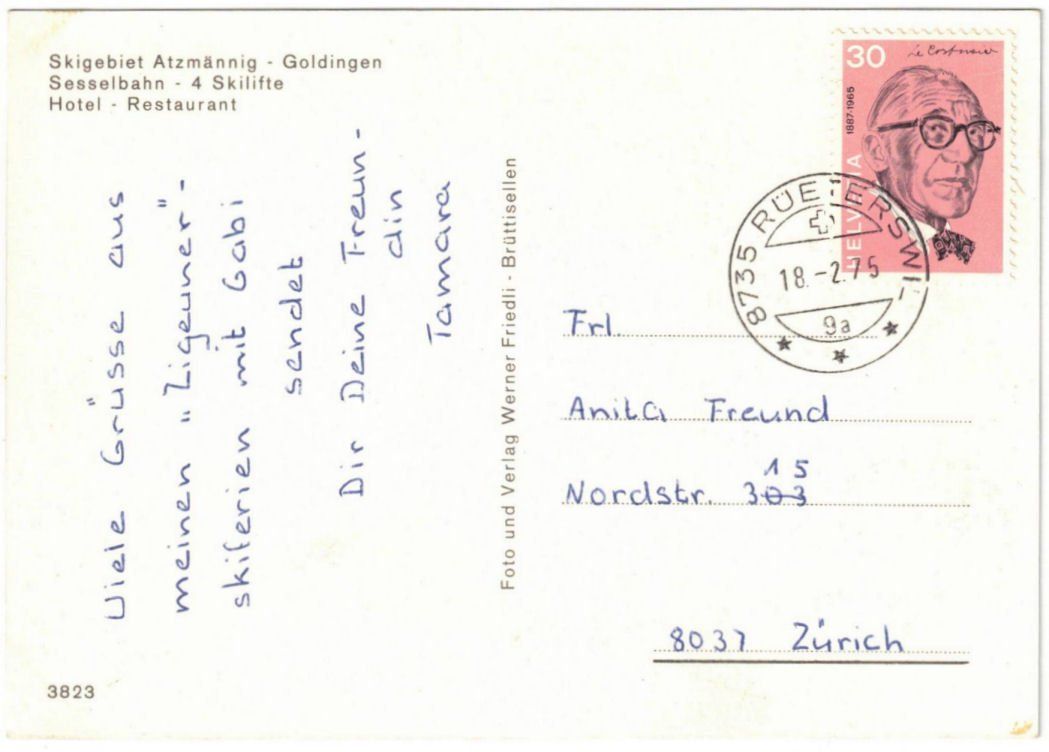 Skigebiet Atzmännig - Goldingen
Sesselbahn - 4 Skilifte
Hotel - Restaurant
Viele Grüsse aus
meinen „Zigeuner"-
skiferien mit Gabi
sendet
Dir Deine Freun-
din
Tamara
Foto und Verlag Werner Friedli - Brüttisellen
30
Le Corbusier
1887-1965
HELVETIA
8735 RÜETERSWIL
18.-2.75
9a
Frl.
Anita Freund
15
Nordstr. 303
8037 Zürich
3823